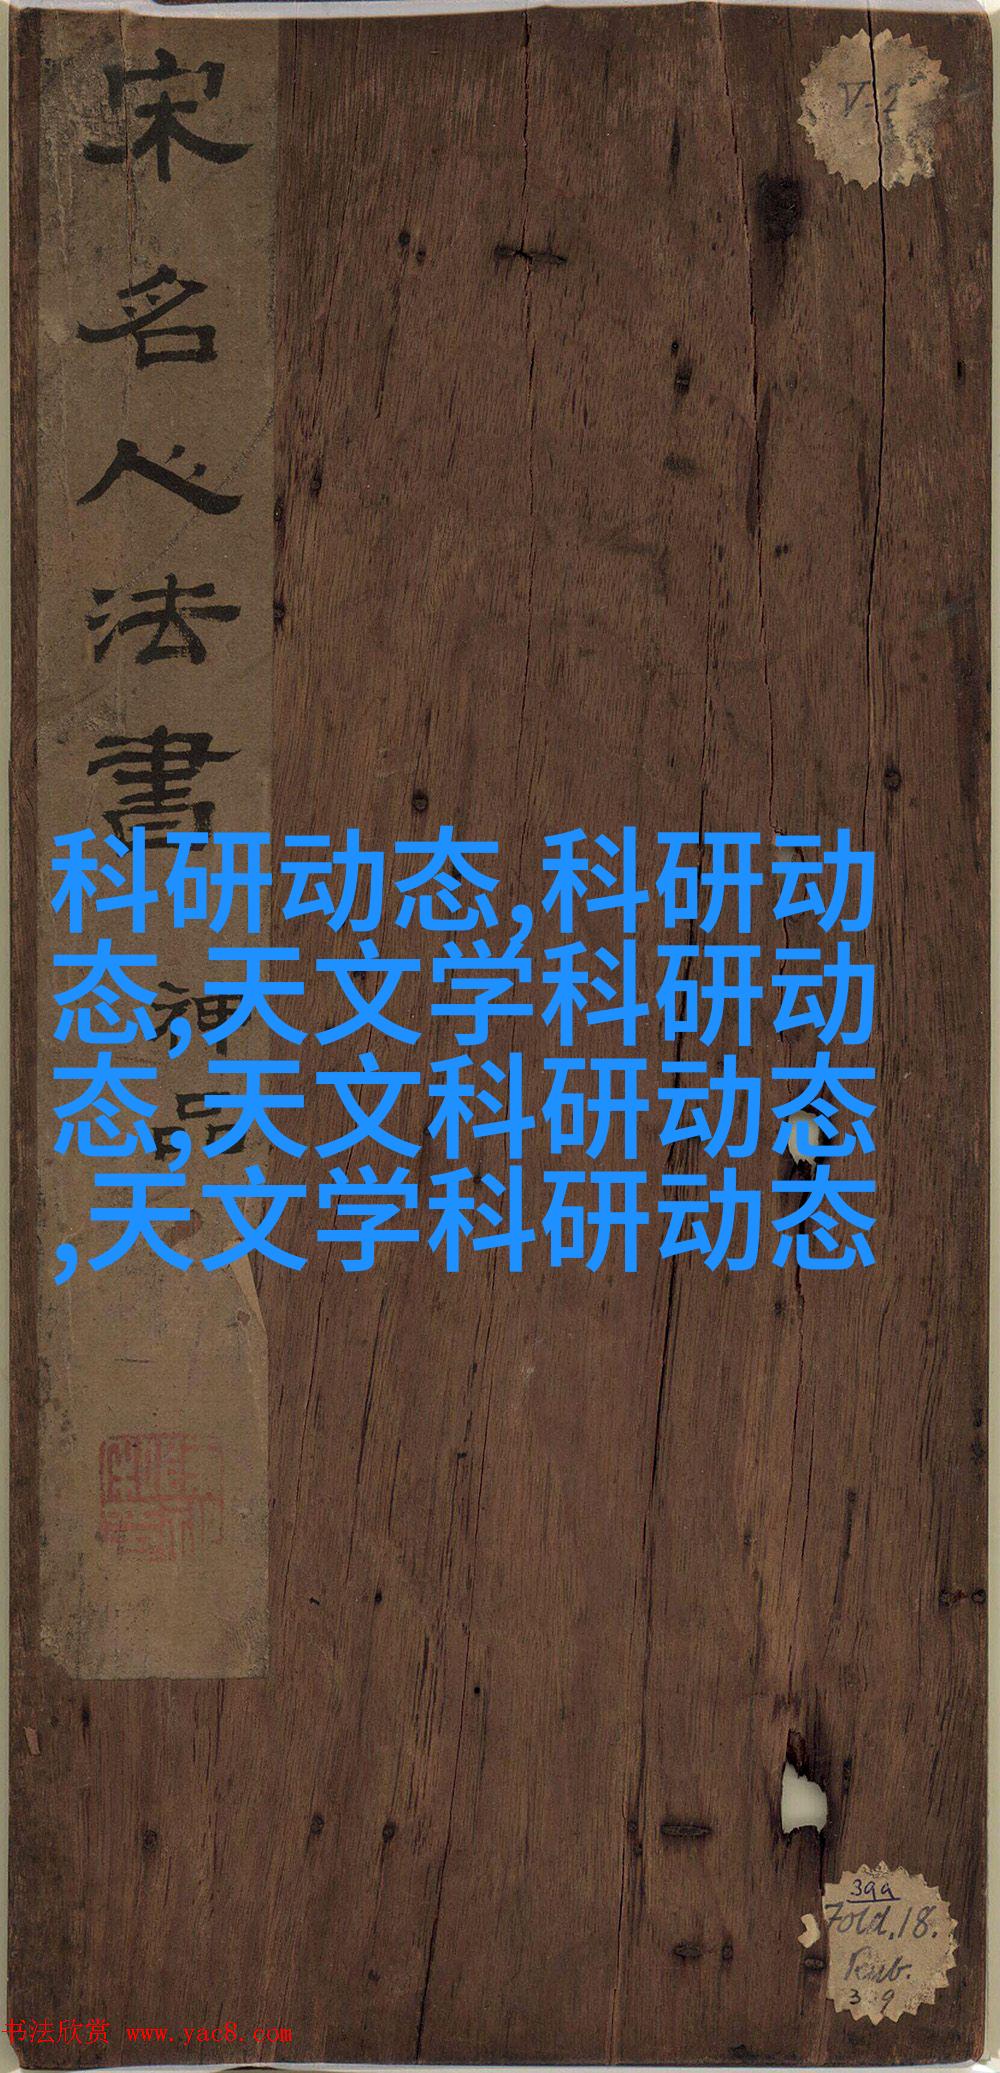 宋名人法書 神品
V-2
科研动态,科研动
态,天文学科研动
态,天文科研动态
,天文学科研动态
399
Fold.18.
书法欣赏 www.yac8.com